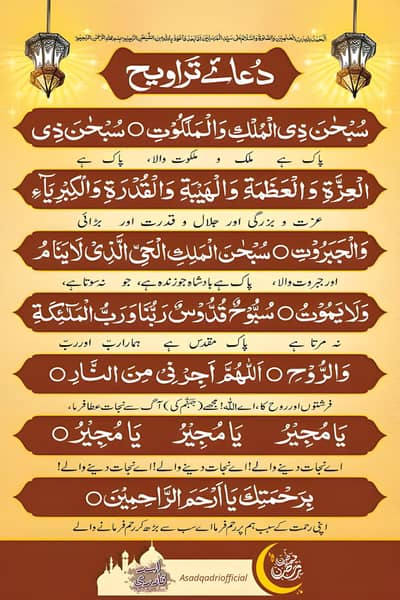 اَلْحَمْدُ لِلّٰهِ رَبِّ الْعٰلَمِیْنَ وَالصَّلٰوةُ وَالسَّلَامُ عَلٰی سَیِّدِ الْمُرْسَلِیْنَ اَمَّا بَعْدُ فَاَعُوْذُ بِاللّٰهِ مِنَ الشَّیْطٰنِ الرَّجِیْمِ بِسْمِ اللّٰهِ الرَّحْمٰنِ الرَّحِیْمِ
دُعائے تراویح
سُبْحٰنَ ذِی الْمُلْكِ وَالْمَلَكُوْتِ ○ سُبْحٰنَ ذِی
پاک ہے ملک و ملکوت والا، پاک ہے
الْعِزَّةِ وَالْعَظَمَةِ وَالْهَیْبَةِ وَالْقُدْرَةِ وَالْكِبْرِیَآءِ
عزت و بزرگی اور جلال و قدرت اور بڑائی
وَالْجَبَرُوْتِ ○ سُبْحٰنَ الْمَلِكِ الْحَیِّ الَّذِیْ لَا یَنَامُ
اور جبروت والا، پاک ہے بادشاہ جو زندہ ہے، جو نہ سوتا ہے،
وَلَا یَمُوْتُ ○ سُبُّوْحٌ قُدُّوْسٌ رَبُّنَا وَرَبُّ الْمَلٰٓئِكَةِ
نہ مرتا ہے پاک مقدس ہے ہمارا رب اور ربّ
وَالرُّوْحِ ○ اَللّٰهُمَّ اَجِرْنِیْ مِنَ النَّارِ ○
فرشتوں اور روح کا، اے اللہ! مجھے (جہنّم کی) آگ سے نجات عطا فرما،
یَا مُجِیْرُ یَا مُجِیْرُ یَا مُجِیْرُ ○
اے نجات دینے والے! اے نجات دینے والے! اے نجات دینے والے!
بِرَحْمَتِكَ یَا اَرْحَمَ الرَّاحِمِیْنَ ○
اپنی رحمت کے سبب ہم پر رحم فرما اے سب سے بڑھ کر رحم فرمانے والے
Asadqadriofficial